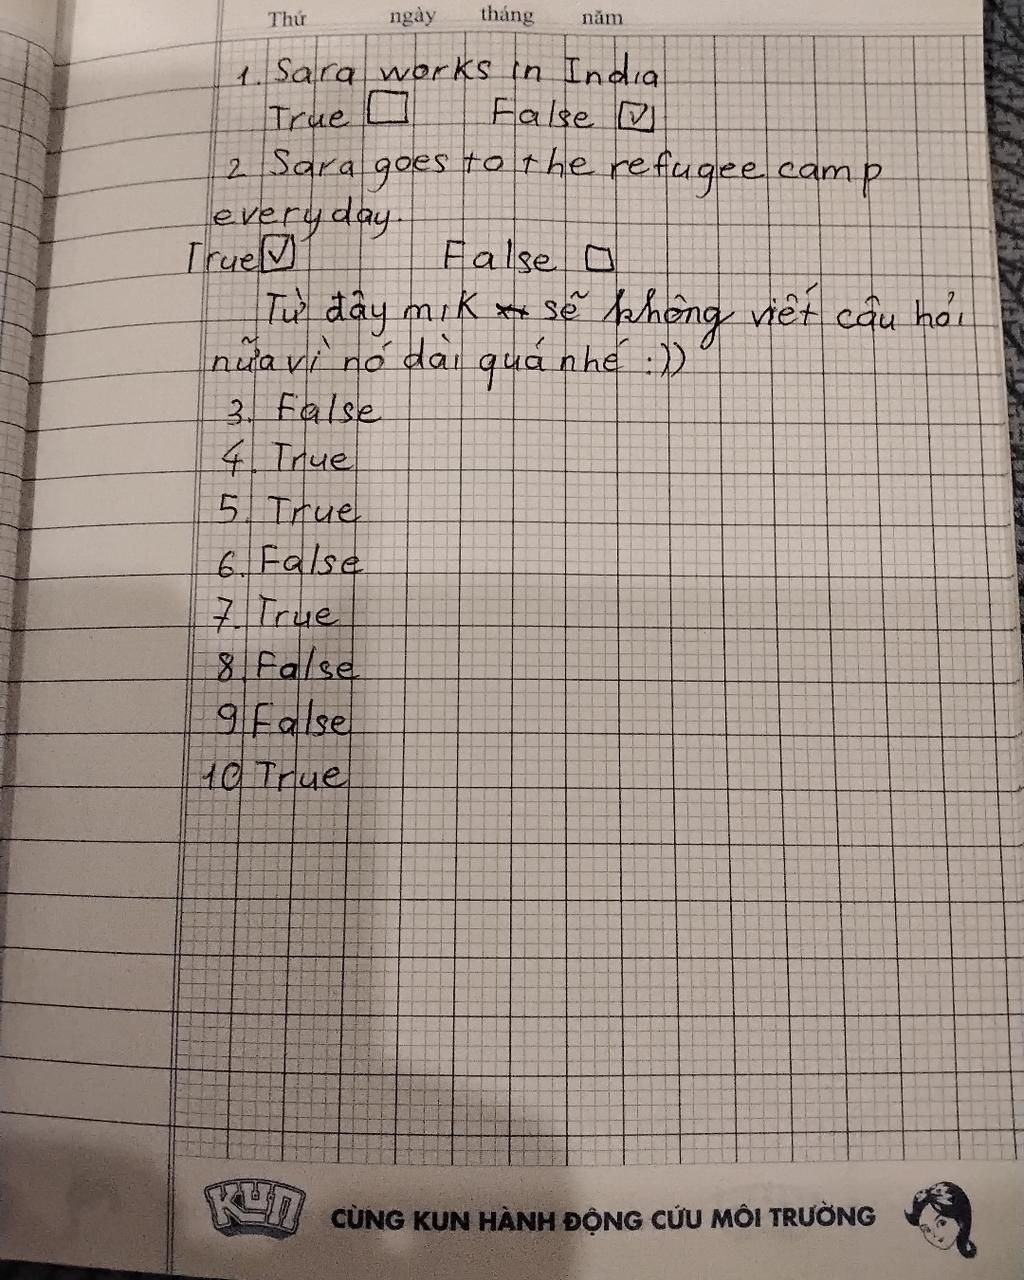 Thứ ngày tháng năm
1. Sara works in India
True False
2 Sara goes to the refugee camp
everyday.
True False
Từ đây mik sẽ không viết câu hỏi
nữa vì nó dài quá nhé :))
3. False
4. True
5. True
6. False
7. True
8 False
9 False
10 True
KUN CÙNG KUN HÀNH ĐỘNG CỨU MÔI TRƯỜNG